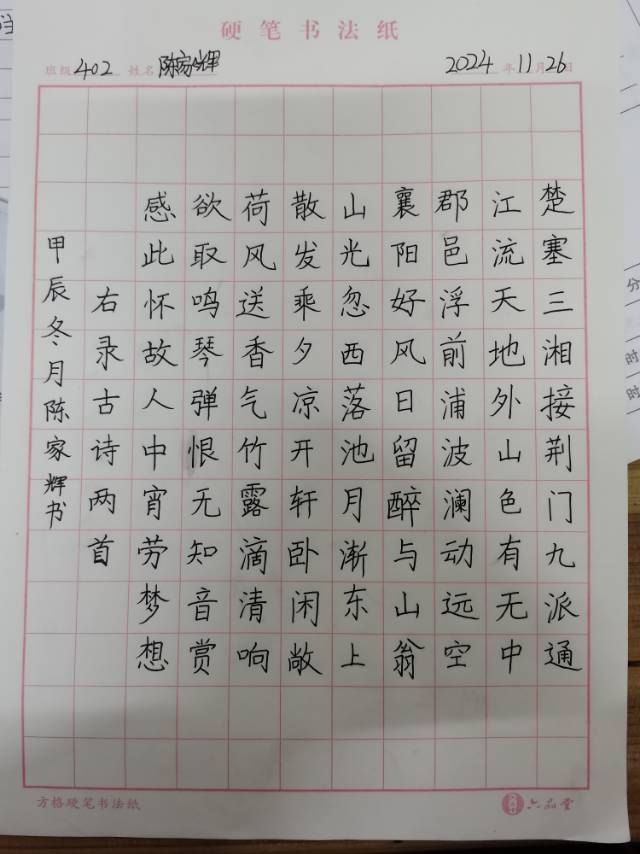 硬笔书法纸
班级 402 姓名 陈家辉 2024年11月26日
楚塞三湘接荆门九派通
江流天地外山色有无中
郡邑浮前浦波澜动远空
襄阳好风日留醉与山翁
山光忽西落池月渐东上
散发乘夕凉开轩卧闲敞
荷风送香气竹露滴清响
欲取鸣琴弹恨无知音赏
感此怀故人中宵劳梦想
右录古诗两首
甲辰冬月陈家辉书
方格硬笔书法纸
六品堂
分
时
时